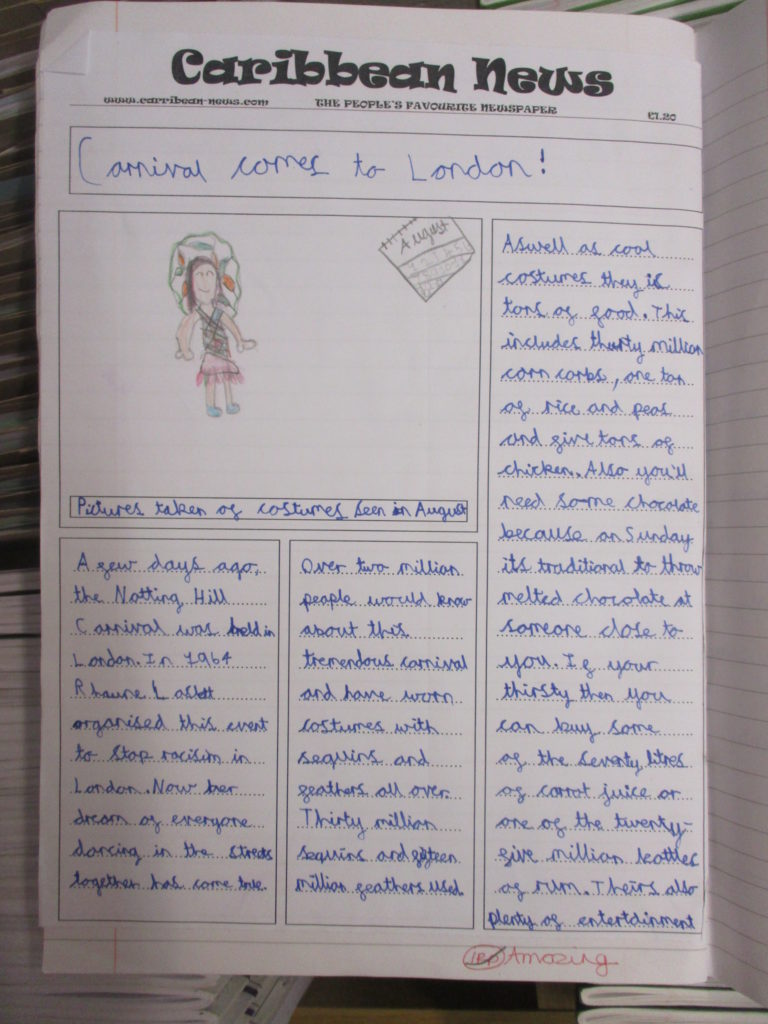 Caribbean News
www.carribean-news.com THE PEOPLE'S FAVOURITE NEWSPAPER £1.20
Carnival comes to London!
August
Pictures taken of costumes seen in August
A few days ago,
the Notting Hill
Carnival was held in
London. In 1964
Rhaune Laslett
organised this event
to stop racisim in
London. Now her
dream of everyone
dancing in the streets
together has come true.
Over two million
people would know
about this
tremendous carnival
and have worn
costumes with
sequins and
feathers all over.
Thirty million
sequins and fifteen
million feathers used
Aswell as cool
costumes they is
tons of food. This
includes thirty million
corn corbs, one ton
of rice and peas
and five tons of
chicken. Also you'll
need some chocolate
because on Sunday
its traditional to throw
melted chocolate at
someone close to
you. If your
thirsty then you
can buy some
of the seventy litres
of carrot juice or
one of the twenty-
five million bottles
of rum. Theirs also
plenty of entertainment
Amazing